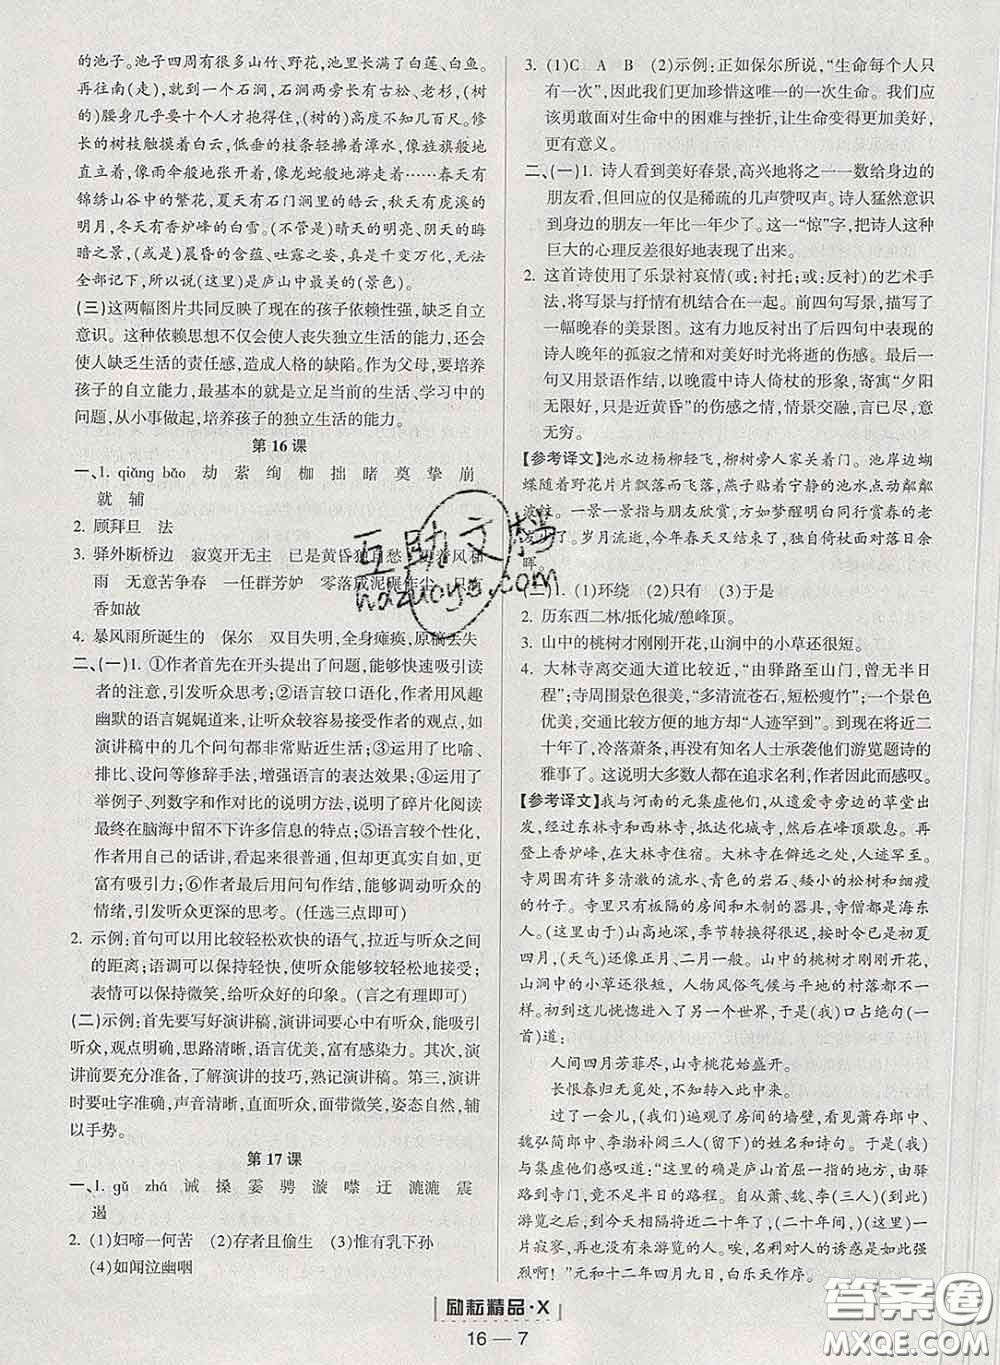 的池子。池子四周有很多山竹、野花,池子里长满了白莲、白鱼。
再往南(走),就到一个石涧,石涧两旁长有古松、老杉,(树
的)腰身几乎要十个人才抱得住,(树的)高度不知有几百尺。修
长的树枝触摸着白云,低垂的枝条轻拂着潭水,像旌旗般地
竖立,像雨伞般地张开着,像龙蛇般地游走着……春天有
锦绣山谷中的繁花,夏天有石门涧里的云,秋天有虎溪的
明月,冬天有香炉峰的白雪。(不管是)晴天的明亮、阴天的晦
暗之景,(或是)晨昏的含蕴、吐露之姿,真是千变万化,无法
全部记下,所以说(这里)是庐山中最美的(景色)。
(三)这两幅图片共同反映了现在的孩子依赖性强,缺乏自立
意识。这种依赖思想不仅会使人丧失独立生活的能力,还会
使人缺乏生活的责任感,造成人格的缺陷。作为父母,要培养
孩子的自立能力,最基本的就是立足当前的生活、学习中的
问题,从小事做起,培养孩子的独立生活的能力。
第 16 课
一、1. qiǎng bǎo 劫 萦 绚 枷 拙 睹 奠 挚 崩
就 辅
2. 顾拜旦 法
3. 驿外断桥边 寂寞开无主 已是黄昏独自愁 更著风和
雨 无意苦争春 一任群芳妒 零落成泥碾作尘 只有
香如故
4. 暴风雨所诞生的 保尔 双目失明,全身瘫痪,原稿丢失
二、(一)1. ①作者首先在开头提出了问题,能够快速吸引读
者的注意,引发听众思考;②语言较口语化,作者用风趣
幽默的语言娓娓道来,让听众较容易接受作者的观点,如
演讲稿中的几个问句都非常贴近生活;③运用了比喻、
排比、设问等修辞手法,增强语言的表达效果;④运用了
举例子、列数字和作对比的说明方法,说明了碎片化阅读
最终在脑海中留不下许多信息的特点;⑤语言较个性化,
作者用自己的话讲,看起来很普通,但却更真实自如,更
富有吸引力;⑥作者最后用问句作结,能够调动听众的
情绪,引发听众更深的思考。(任选三点即可)
2. 示例:首句可以用比较轻松欢快的语气,拉近与听众之间
的距离;语调可以保持轻快,使听众能够较轻松地接受;
表情可以保持微笑,给听众好的印象。(言之有理即可)
(二)示例:首先要写好演讲稿,演讲词要心中有听众,能吸引
听众,观点明确,思路清晰,语言优美,富有感染力。其次,演
讲前要充分准备,了解演讲的技巧,熟记演讲稿。第三,演讲
时要吐字准确,声音清晰,直面听众,面带微笑,姿态自然,辅
以手势。
第 17 课
一、1. gǔ zhá 诫 搡 霎 骋 漩 噤 迂 漉漉 震
遏
2. (1)妇啼一何苦 (2)存者且偷生 (3)惟有乳下孙
(4)如闻泣幽咽
3. (1)C A B (2)示例:正如保尔所说,“生命每个人只
有一次”,因此我们更加珍惜这唯一的一次生命。我们应
该勇敢面对生命中的困难与挫折,让生命变得更美好,更
有意义。
二、(一)1. 诗人看到美好春景,高兴地将之一一数给身边的
朋友看,但回应的仅是稀疏的几声赞叹声。诗人猛然意识
到身边的朋友一年比一年少了。这一“惊”字,把诗人这种
巨大的心理反差很好地表现了出来。
2. 这首诗使用了乐景衬哀情(或:衬托;或:反衬)的艺术手
法,将写景与抒情有机结合在一起。前四句写景,描写了
一幅晚春的美景图。这有力地反衬出了后四句中表现的
诗人晚年的孤寂之情和对美好时光将逝的伤感。最后一
句又用景语作结,以晚霞中诗人倚杖的形象,寄寓“夕阳
无限好,只是近黄昏”的伤感之情,情景交融,言已尽,意
无穷。
【参考译文】池水边杨柳轻飞,柳树旁人家关着门。池岸边蝴
蝶随着野花片片飘落而去,燕子处于宁静的池水点动粼粼
波纹。一景一景指与朋友欣赏,方如梦醒明白同行赏春者在
年年减少。岁月流逝,今年春天又结束了,独自倚杖面对落日余
晖。
(二)1. (1)环绕 (2)只有 (3)于是
2. 历东西二林/抵化城/憩峰顶。
3. 山中的桃树才刚刚开花,山涧中的小草还很短。
4. 大林寺离交通大道比较近,“由驿路至山门,曾无半日
程”;寺周围景色很美,“多清流苍石,短松瘦竹”;一个景色
优美,交通比较方便的地方却“人迹罕到”。到现在将近二
十年了,冷落萧条,再没有知名人士承袭他们游览题诗的
雅事了。这说明大多数人都在追求名利,作者因此而感叹。
【参考译文】我与河南的元集虚他们,从遗爱寺旁边的草堂出
发,经过东林寺和西林寺,抵达化城寺,然后在峰顶歇息。再
登上香炉峰,在大林寺住宿。大林寺在僻远之处,人迹罕至。
寺周围有许多清澈的流水、青色的岩石、矮小的松树和细瘦
的竹子。寺里只有板隔的房间和木制的器具,寺僧都是海东
人。(因于)山高地深,季节转换得很迟,按时令已是初夏
四月,(天气)还像正月、二月一般。山中的桃树才刚刚开花,
山涧中的小草还很短,人物风俗气候与平地的村落有所不
同。初到这儿恍惚进入了另一个世界,于是(我)口占绝句(一
首)道:
人间四月芳菲尽,山寺桃花始盛开。
长恨春归无觅处,不知转入此中来。
过了一会儿,(我们)遍观了房间的墙壁,看见萧存郎中、
魏弘简郎中、李渤补阙三人(留下)的姓名和诗句。于是(我)
与集虚他们感叹道:“这里的确是庐山首屈一指的地方,由驿
路到寺门,不到半日的路程。自从萧、魏、李(三人)(到此)
游览之后,到今天相隔将近二十年了,(二十年间,)(这里)一
片寂寥,再没有来游览的文人。唉,名利对人的诱惑是如此强
烈啊!”元和十二年四月九日,白乐天作序。
励耘精品·X
16 — 7
互助文档
hazuoye.com
答案圈
MXQE.COM